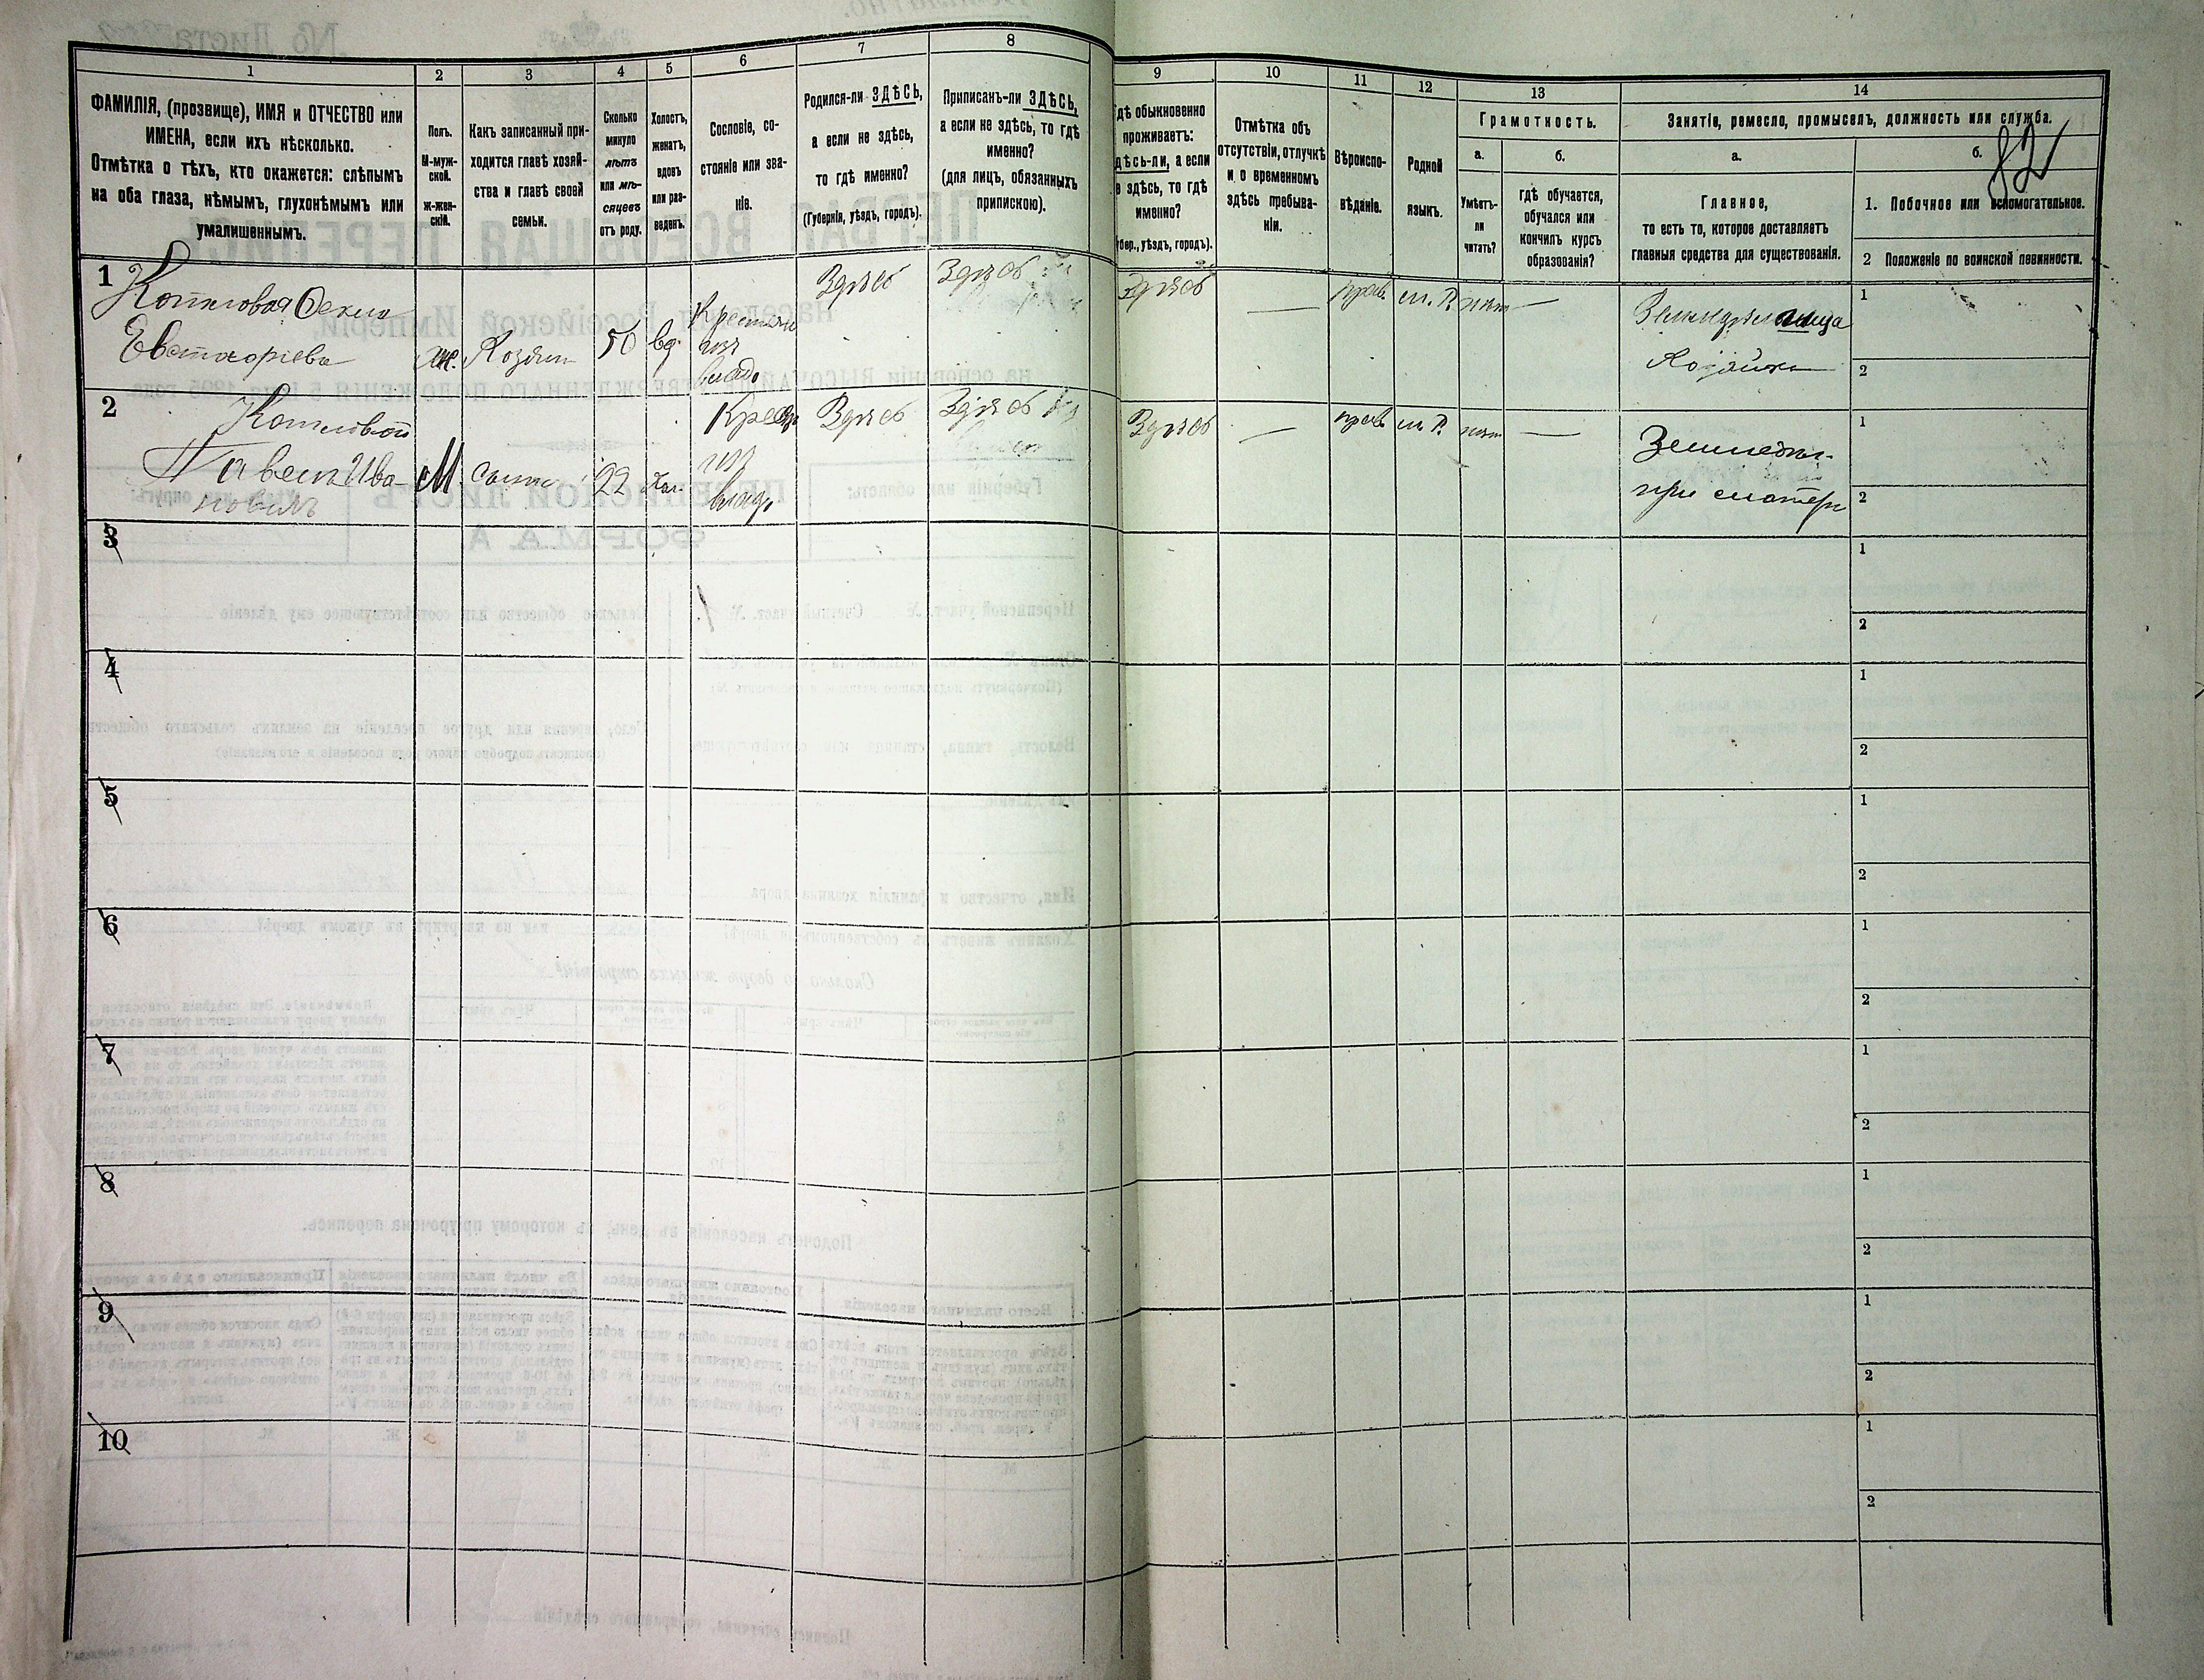 1 2 3 4 5 6 7 8 9 10 11 12 13 14
ФАМИЛІЯ, (прозвище), ИМЯ и ОТЧЕСТВО или
ИМЕНА, если ихъ нѣсколько.
Отмѣтка о тѣхъ, кто окажется: слѣпымъ
на оба глаза, нѣмымъ, глухонѣмымъ или
умалишеннымъ.
Полъ.
М-муж-
ской.
ж-жен-
скій.
Какъ записанный при-
ходится главѣ хозяй-
ства и главѣ своей
семьи.
Сколько
минуло
лѣтъ
или мѣ-
сяцевъ
отъ роду.
Холостъ,
женатъ,
вдовъ
или раз-
веденъ.
Сословіе, со-
стояніе или зва-
ніе.
Родился-ли ЗДѢСЬ,
а если не здѣсь,
то гдѣ именно?
(Губернія, уѣздъ, городъ).
Приписанъ-ли ЗДѢСЬ,
а если не здѣсь, то гдѣ
именно?
(для лицъ, обязанныхъ
припискою).
гдѣ обыкновенно
проживаетъ:
здѣсь-ли, а если
не здѣсь, то гдѣ
именно?
(Губер., уѣздъ, городъ).
Отмѣтка объ
отсутствіи, отлучкѣ
и о временномъ
здѣсь пребыва-
ніи.
Вѣроиспо-
вѣданіе.
Родной
языкъ.
Грамотность.
а.
Умѣетъ-
ли
читать?
б.
гдѣ обучается,
обучался или
кончилъ курсъ
образованія?
Занятіе, ремесло, промыселъ, должность или служба.
а.
Главное,
то есть то, которое доставляетъ
главныя средства для существованія.
б.
82
1. Побочное или вспомогательное.
2 Положеніе по воинской повинности.
1
Котловая Фекла
Евстафіева
ж.
Хозяин
50
вд.
Крестьян
изъ
влад.
Здѣсь
Здѣсь
Здѣсь
—
прав.
м. Р.
нѣт
—
Земледѣлица
Хозяйка
1
2
2
Котловой
Павелъ Ива-
новичъ
М.
сынъ
22
хол.
Крест
изъ
влад.
Здѣсь
Здѣсь
Здѣсь
—
прав
м. Р.
нѣт
—
Земледѣл.
при матери
1
2
3
1
2
4
1
2
5
1
2
6
1
2
7
1
2
8
1
2
9
1
2
10
1
2